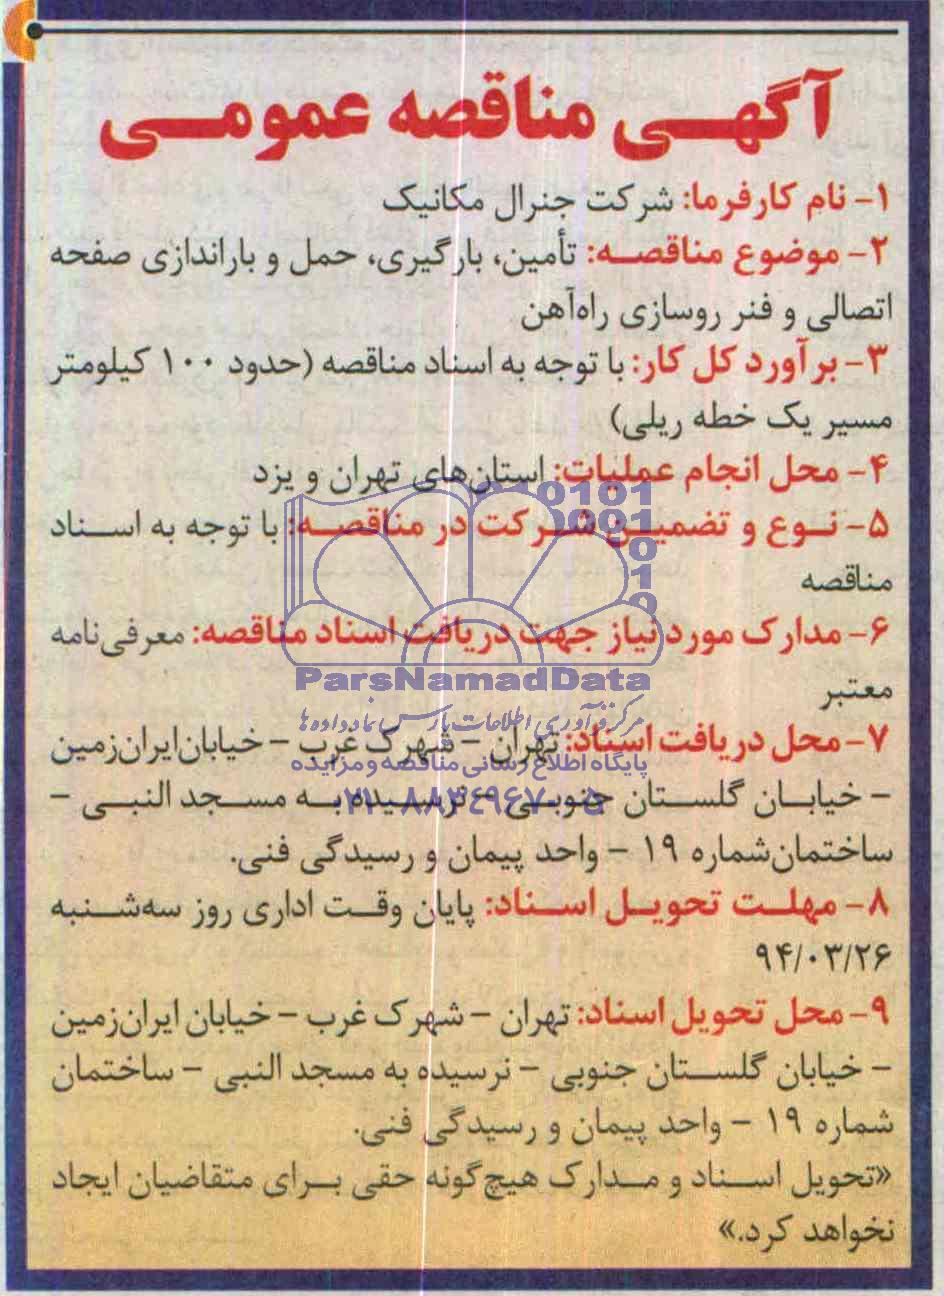 آگهی مناقصه عمومی
۱- نام کارفرما: شرکت جنرال مکانیک
۲- موضوع مناقصه: تأمین، بارگیری، حمل و باراندازی صفحه
اتصالی و فنر روسازی راه‌آهن
۳- برآورد کل کار: با توجه به اسناد مناقصه (حدود ۱۰۰ کیلومتر
مسیر یک خطه ریلی)
۴- محل انجام عملیات: استان‌های تهران و یزد
۵- نوع و تضمین شرکت در مناقصه: با توجه به اسناد
مناقصه
۶- مدارک مورد نیاز جهت دریافت اسناد مناقصه: معرفی‌نامه
معتبر
۷- محل دریافت اسناد: تهران - شهرک غرب - خیابان ایران‌زمین
- خیابان گلستان جنوبی - نرسیده به مسجد النبی -
ساختمان شماره ۱۹ - واحد پیمان و رسیدگی فنی.
۸- مهلت تحویل اسناد: پایان وقت اداری روز سه‌شنبه
۹۴/۰۳/۲۶
۹- محل تحویل اسناد: تهران - شهرک غرب - خیابان ایران‌زمین
- خیابان گلستان جنوبی - نرسیده به مسجد النبی - ساختمان
شماره ۱۹ - واحد پیمان و رسیدگی فنی.
«تحویل اسناد و مدارک هیچ‌گونه حقی برای متقاضیان ایجاد
نخواهد کرد.»
ParsNamadData
مرکز فرآوری اطلاعات پارس نماد داده‌ها
پایگاه اطلاع رسانی مناقصه و مزایده